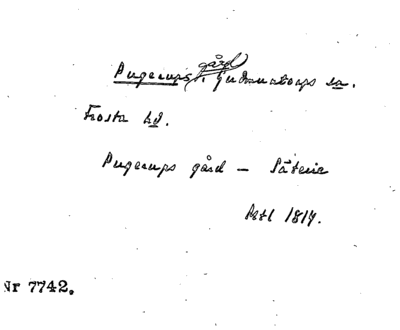 Pugerups gård, Gudmuntorps sn.
Frosta hd.
Pugerups gård — Säterie
Nr 7742.